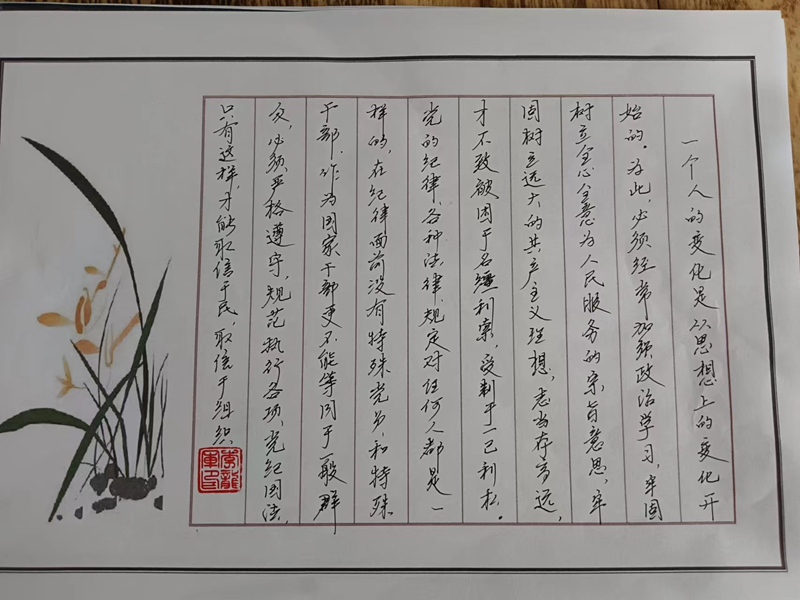 一个人的变化是从思想上的变化开
始的。为此，必须经常加强政治学习，牢固
树立全心全意为人民服务的宗旨意思，牢
固树立远大的共产主义理想，志当存高远，
才不致被困于名缰利索，受制于一己利私。
党的纪律、各种法律、规定对任何人都是一
样的，在纪律面前没有特殊党员和特殊
干部，作为国家干部更不能等同于一般群
众，必须严格遵守，规范执行各项党纪国法，
只有这样，才能取信于民，取信于组织